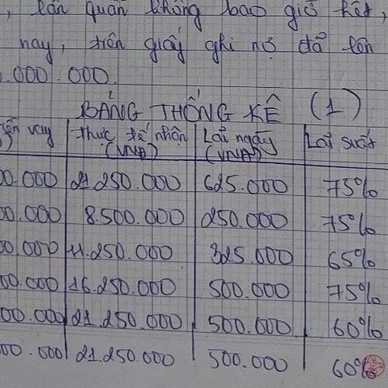 , lẩn quẩn không bao giờ hết,
nay, trên giấy ghi nợ đã lên
.000.000.
BẢNG THỐNG KÊ (1)
vay | thực tế nhận (VNĐ) | Lãi ngày (VNĐ) | Lãi suất
00.000 | 21.250.000 | 625.000 | 75%
00.000 | 8.500.000 | 250.000 | 75%
00.000 | 11.250.000 | 325.000 | 65%
00.000 | 16.250.000 | 500.000 | 75%
00.000 | 21.250.000 | 500.000 | 60%
00.000 | 21.250.000 | 500.000 | 60%